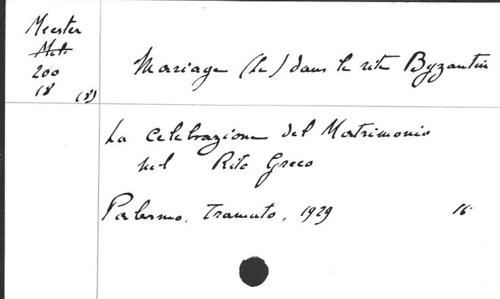 Meester
200
18 (8)
Mariage (Le) dans le rite Byzantin
La Celebrazione del Matrimonio
nel Rito Greco
Palermo, Tramuto, 1929 16